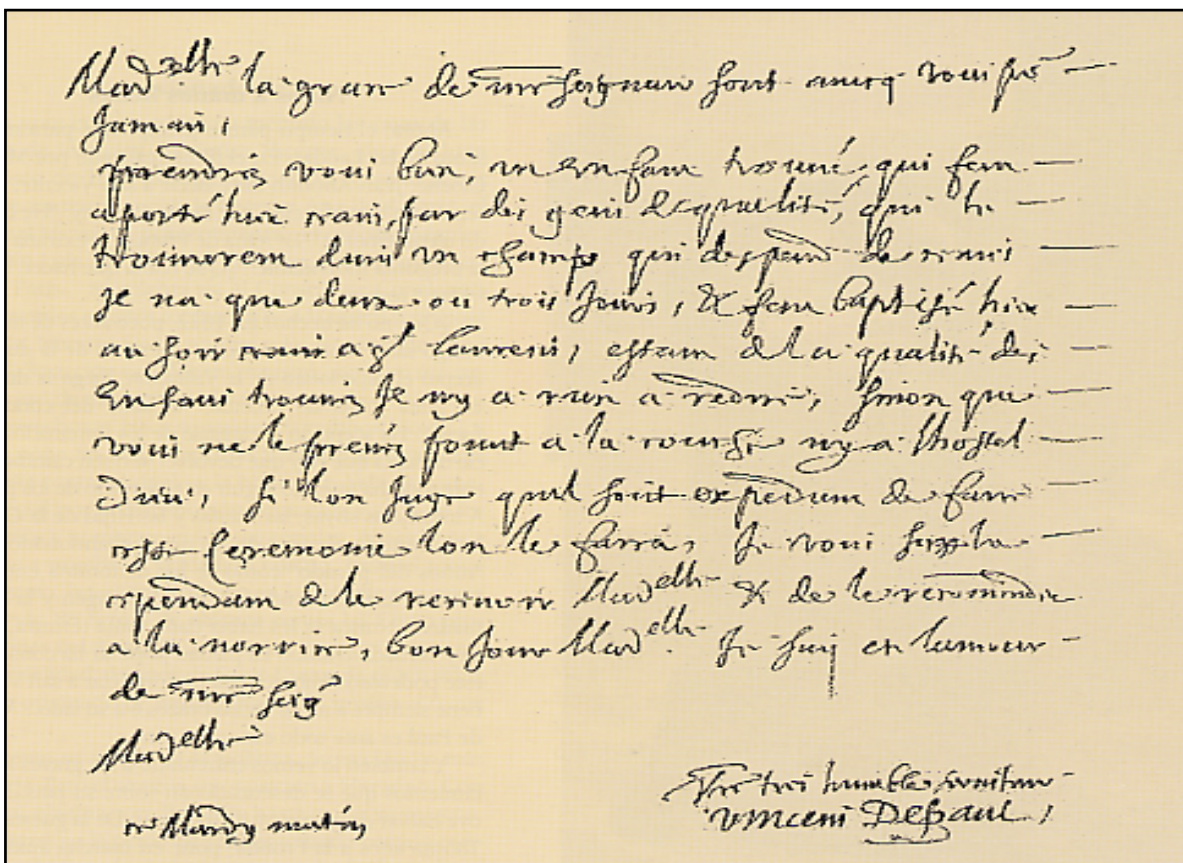 Mad.elle la grace de nre seigneur soit avecq vous pr
Jamais,
prendrez vous bien, un Enfant trouvé, qui feut
aporté hier ceans, par des gens de qualité, qui le
trouverent dans un champs qui despend de ceans
Il na que deux ou trois Jours, & feut baptisé hier
au soir ceans a St Laurens, estant de la qualité des
Enfans trouvez Il ny a rien a redire, sinon que
vous ne le prenez point a la couche ny a lhostel
Dieu, si lon Juge quil soit expedient de faire
ceste Ceremonie lon le faira, Je vous supplie
cependant de le recevoir Madelle & de le recommander
a la norrice, bon Jour Madelle. Je suis en lamour
de nre seigr
Madelle
ce Mardy matin
Vre tres humble serviteur
Vincent Depaul,